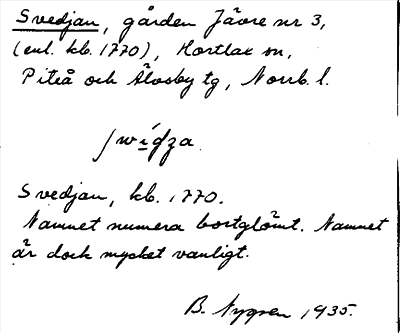 Svedjan, gården Jävre nr 3,
(enl. kb. 1770), Hortlax sn,
Piteå och Älvsby tg, Norrb. l.
Svedjan, kb. 1770.
Namnet numera bortglömt. Namnet
är dock mycket vanligt.
B. Nygren 1935.